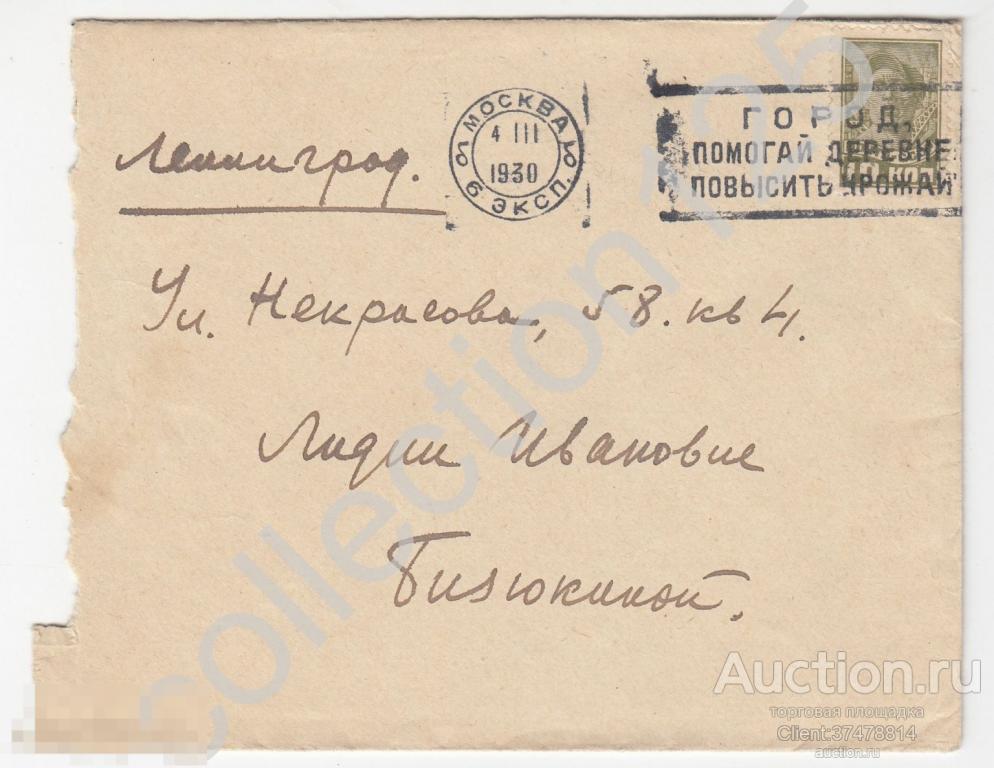 МОСКВА
4 III
1930
6 ЭКСП.
ГОРОД,
ПОМОГАЙ ДЕРЕВНЕ
ПОВЫСИТЬ УРОЖАЙ
Ленинград.
Ул. Некрасова, 58. кв 4.
Лидии Ивановне
Бизюкиной.
collection 125
Auction.ru
торговая площадка
Client:37478814
auction.ru